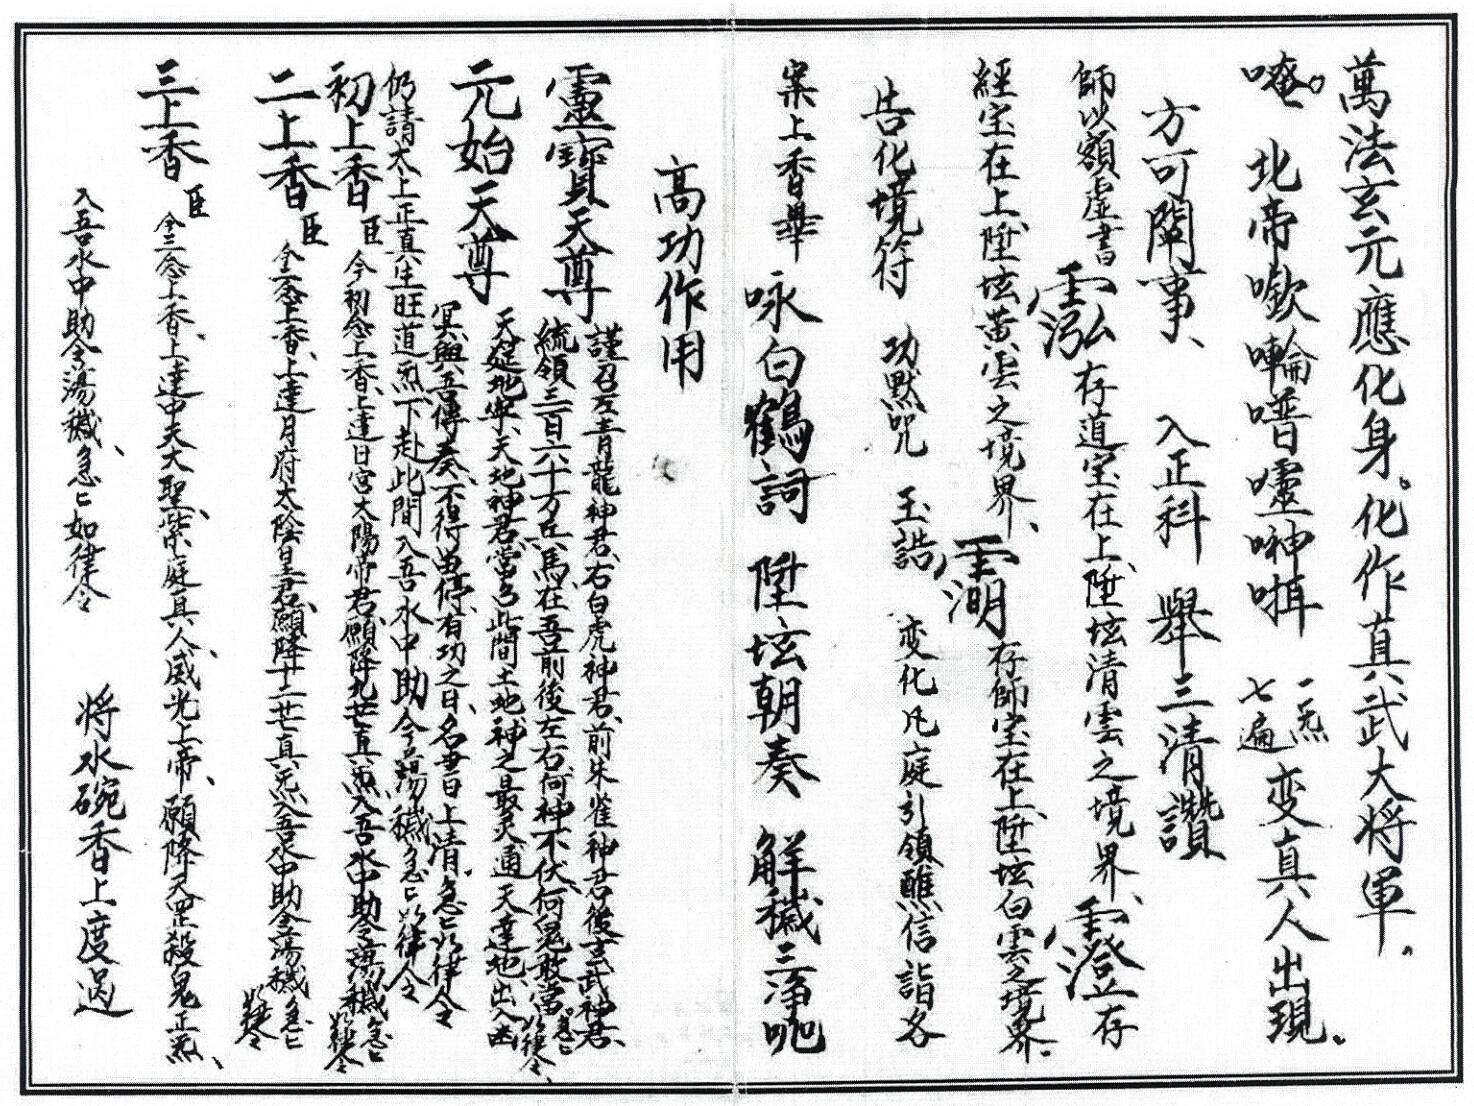 萬法玄元應化身。化作真武大将軍。
唵。北帝㘕㘄噆嚧呻㗇 一炁七遍 变真人出現。
方可闡事、 入正科 舉三清讚
師以額虛書 䨱 存道宝在上、陞坛清雲之境界、 澄 存
經宝在上、陞坛黃雲之境界、 䨵 存師宝在上、陞坛白雲之境界。
告化境符 功默咒 玉誥 变化凡庭引領醮信詣各
案上香畢 咏白鶴詞 陞坛朝奏 解穢三淨呪
高功作用
靈寶天尊 謹召左青龍神君、右白虎神君、前朱雀神君、後玄武神君、
統領三百六十万兵馬、在吾前後左右、何神不伏、何鬼敢當。急〻如律令、
元始天尊 天筵地寧、天地神君、當方此間土地神之最灵、通天達地、出入幽
冥、與吾傳奏、不得留停、有功之日、名書上清。急〻如律令
仍請太上正真生旺道炁下赴此間、入吾水中助令蕩穢急〻如律令
初上香 臣今初念上香、上達日宮太陽帝君、願降九芒真炁、入吾水中助令蕩穢急〻如律令
二上香 臣今二念上香、上達月府太陰皇君、願降十二芒真炁入吾水中助令蕩穢急〻如律令
三上香 臣今三念上香、上達中天大聖、紫庭真人、威光上帝、願降天罡殺鬼正炁、
入吾水中助令蕩穢、急〻如律令 将水碗香上度過